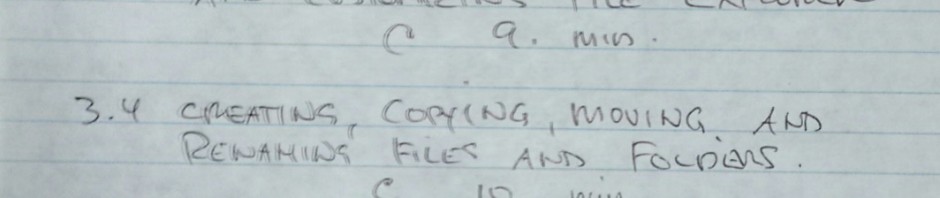 FILE EXPLORER
C 9. min.
3.4 CREATING, COPYING, MOVING AND
RENAMING FILES AND FOLDERS.
C 10 min